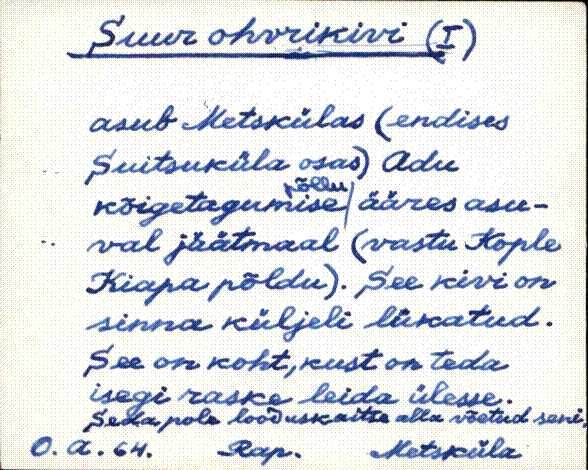 Suur ohvrikivi (I)
asub Metskülas (endises
Suitsuküla osas) Adu
põllu
kõigetagumise ääres asu-
val jäätmaal (vastu Kople
Kiapa põldu). See kivi on
sinna küljeli lükatud.
See on koht, kust on teda
isegi raske leida ülesse.
Seda pole looduskaitse alla võetud seni.
O. A. 64. Rap. Metsküla